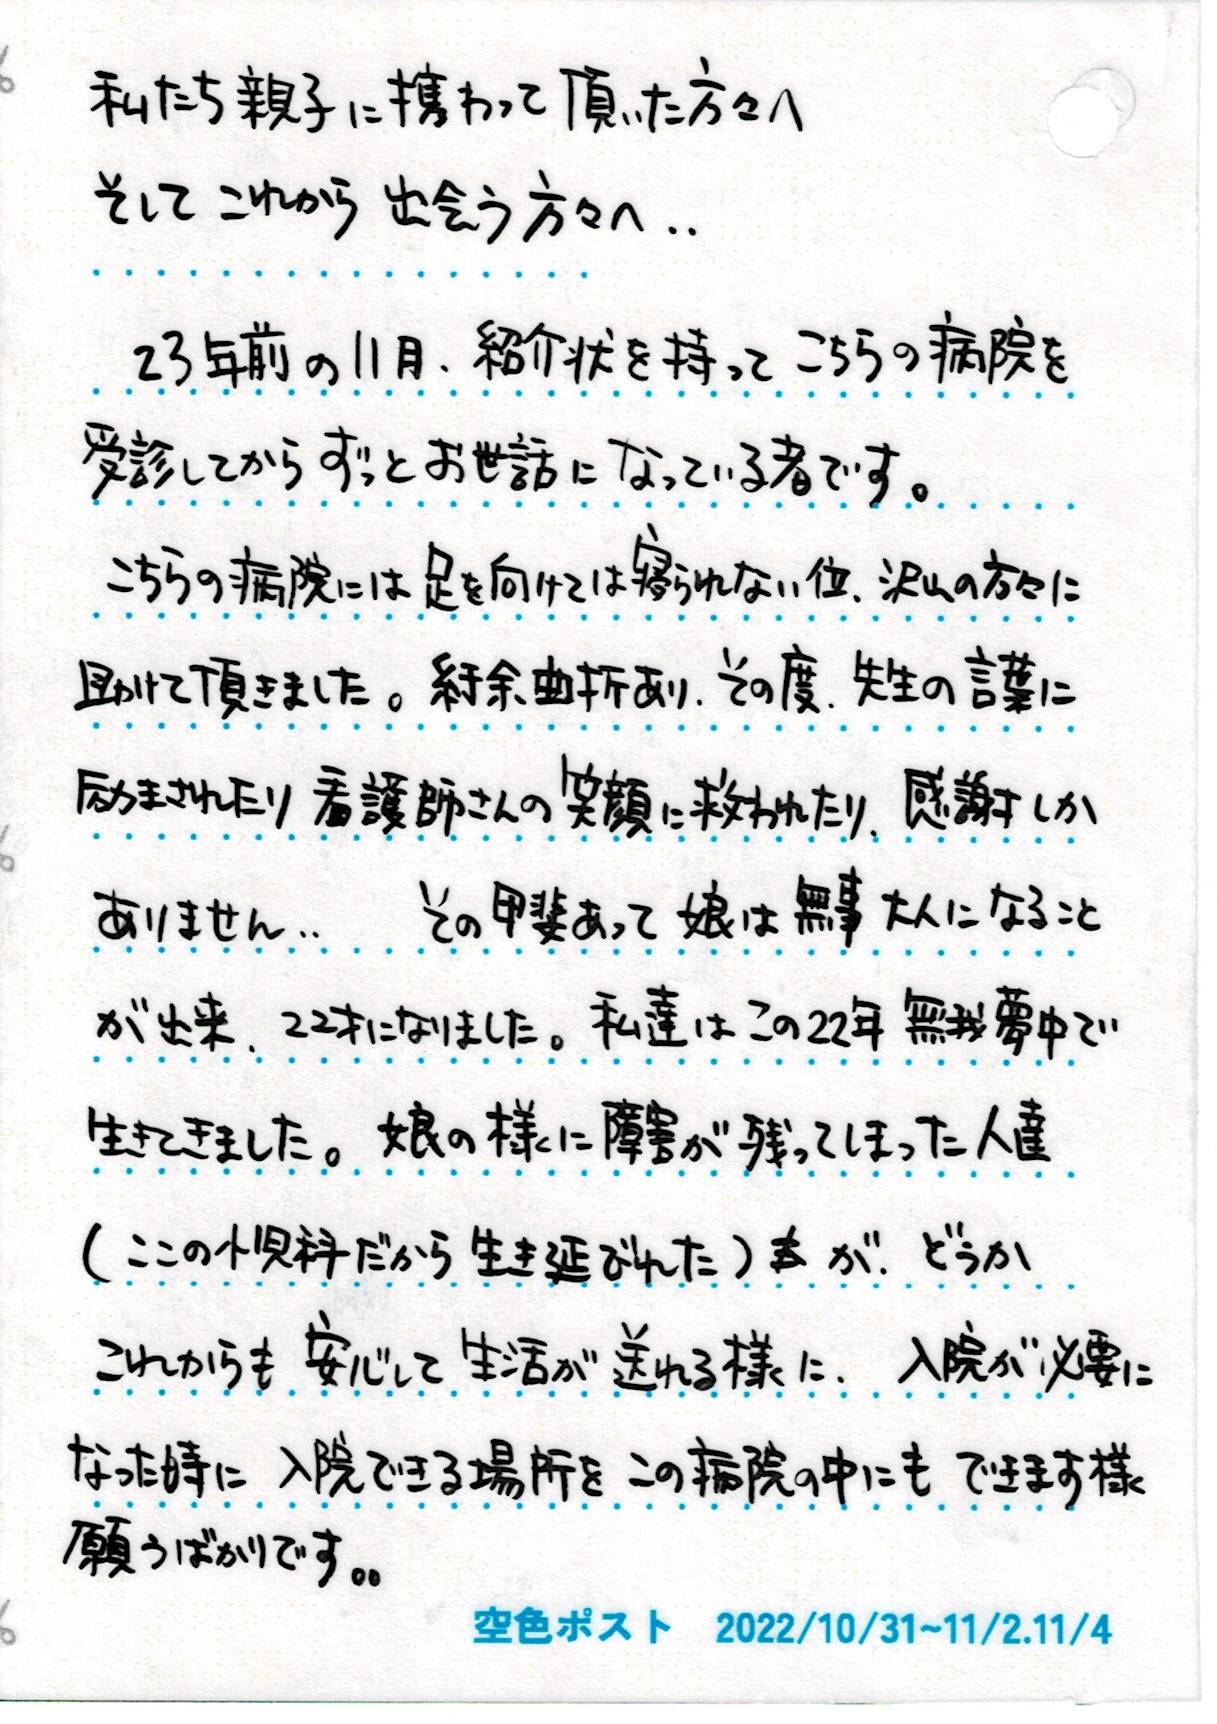 私たち親子に携わって頂いた方々へ
そしてこれから出会う方々へ..
23年前の11月、紹介状を持ってこちらの病院を
受診してからずっとお世話になっている者です。
こちらの病院には足を向けては寝られない位、沢山の方々に
助けて頂きました。紆余曲折あり、その度、先生の言葉に
励まされたり看護師さんの笑顔に救われたり、感謝しか
ありません.. その甲斐あって娘は無事大人になること
が出来、22才になりました。私達はこの22年無我夢中で
生きてきました。娘の様に障害が残ってしまった人達
(ここの小児科だから生き延びれた)が、どうか
これからも安心して生活が送れる様に、入院が必要に
なった時に入院できる場所をこの病院の中にもできます様
願うばかりです。。
空色ポスト 2022/10/31~11/2.11/4